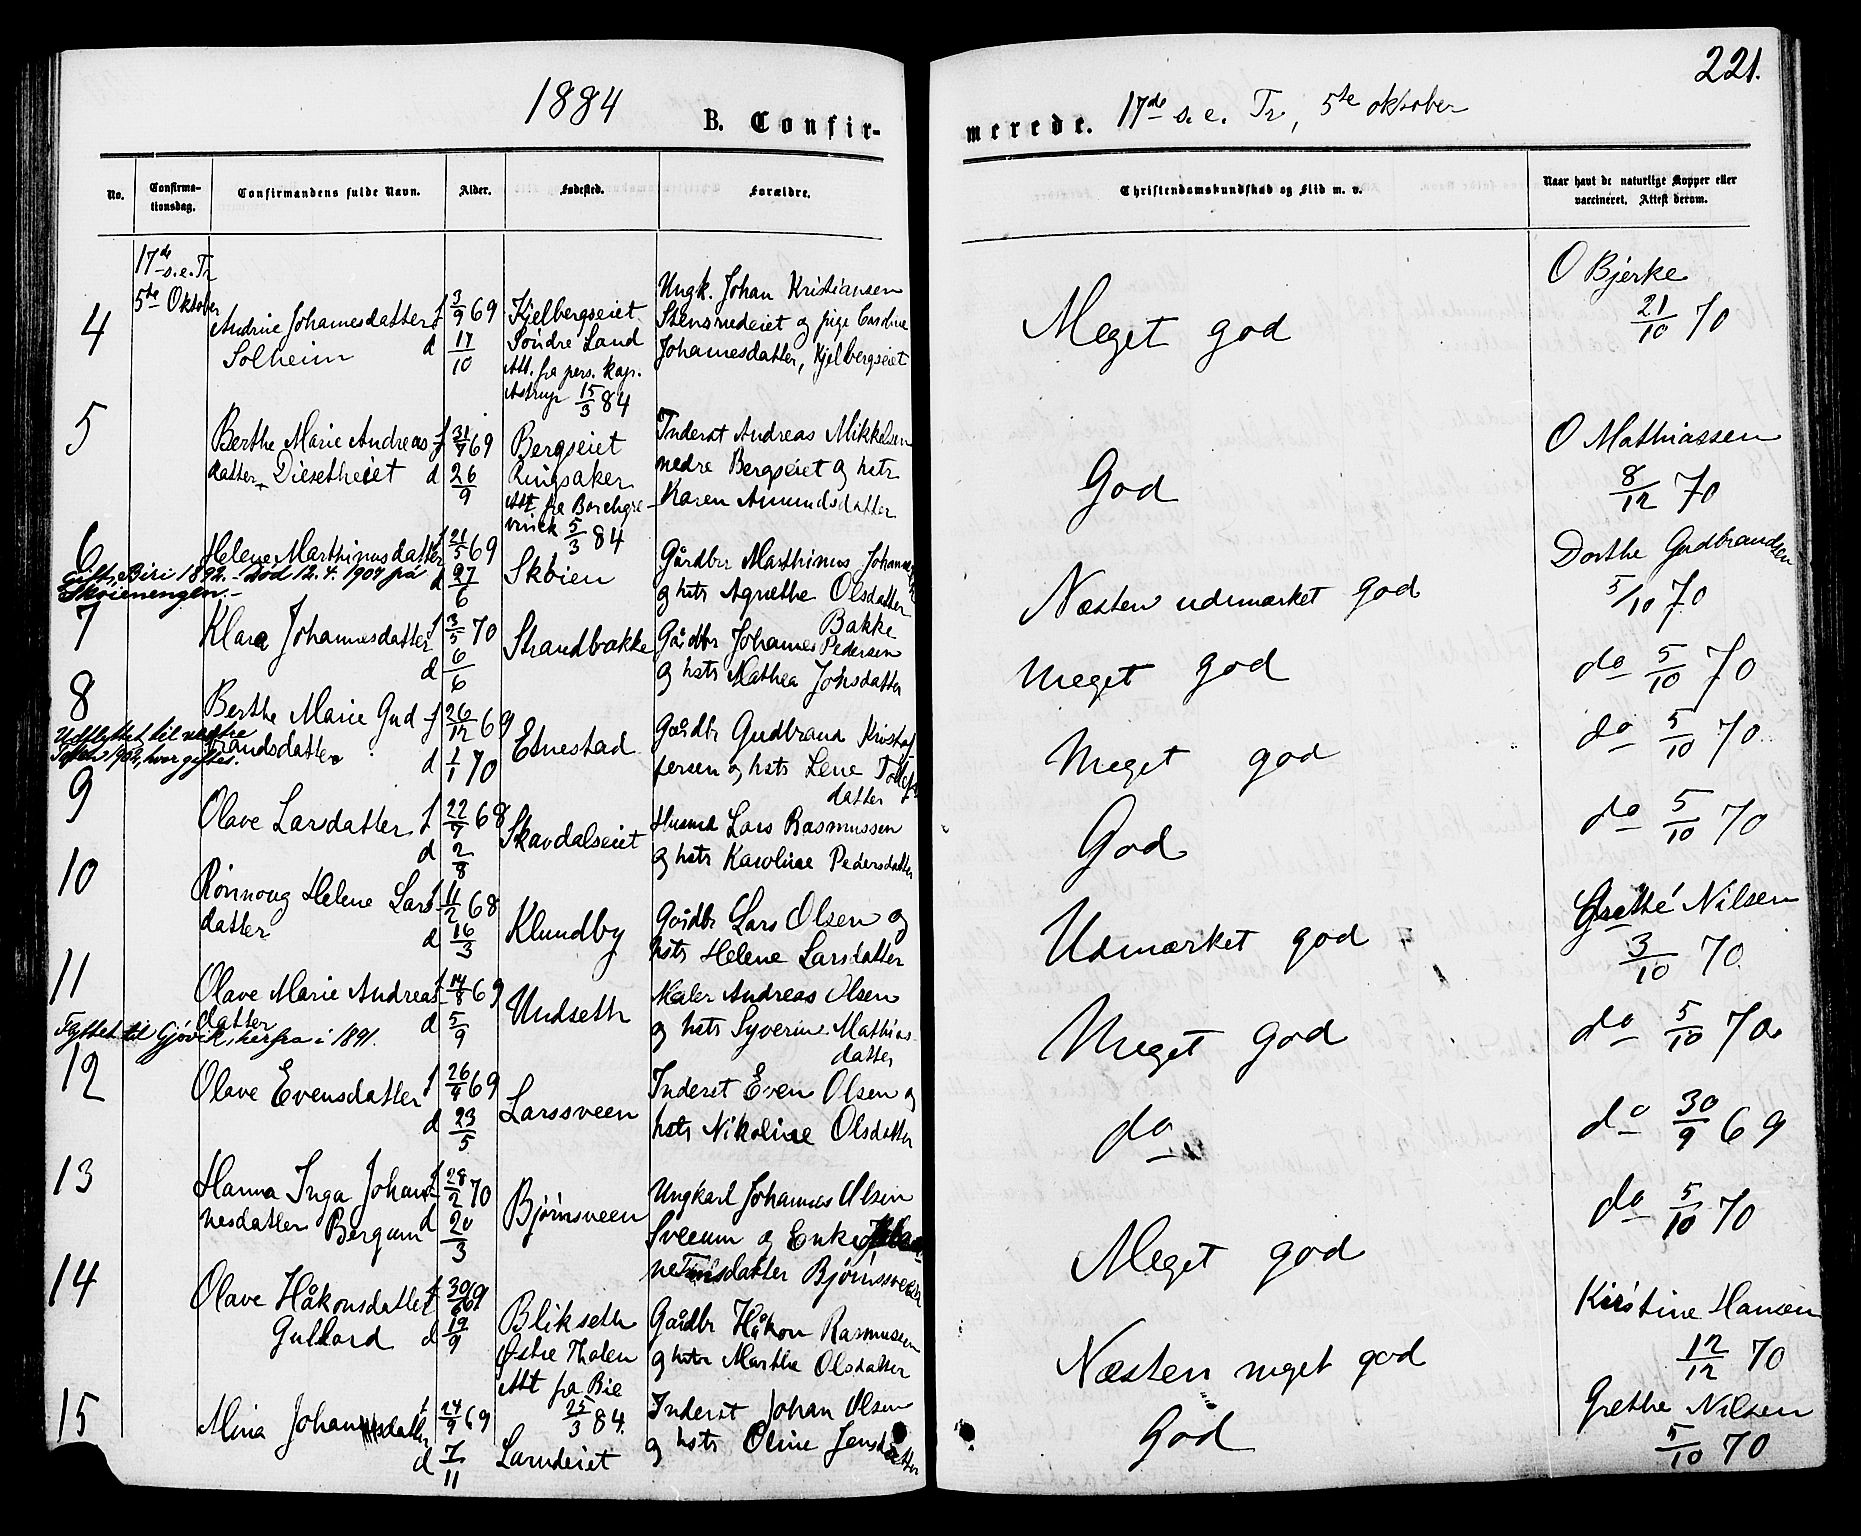 221.
1884
B. Confir-
merede. 17de s. e. Tr, 5te oktober
No.
Confirma-
tionsdag.
Confirmandens fulde Navn.
Alder.
Fødested.
Forældre.
Christendomskundskab og Flid m. v.
Naar havt de naturlige Kopper eller
vaccineret. Attest derom.
17de s. e. Tr
5te Oktober
4
Andrine Johannesdatter
Solheim
f 3/9 69
d 17/10
Kjelbergseiet
Søndre Land
Att. fra pers. kap.
Astrup 15/3 84
Ungk. Johan Kristiansen
og pige Caroline
Johannesdatter, Kjelbergseiet
Meget god
O Bjerke
21/10 70
5
Berthe Marie Andreas-
datter Diesetheiet
f 31/7 69
d 26/9
Bergseiet
Ringsaker
Att. fra Borchgre-
vinck 5/3 84
Inderst Andreas Mikkelsen
nedre Bergseiet og hstr
Karen Amundsdatter
God
O Mathiassen
8/12 70
6
Helene Marthinusdatter
f 21/5 69
d 27/6
gift, Biri 1892. - død 12.4.1907 på
Skøienengen.-
Skøien
Gårdbr Marthinus
og hstr Agnethe Olsdatter
Næsten udmærket god
Dorthe Gudbrandsen
5/10 70
7
Klara Johannesdatter
f 3/5 70
d 6/6
Strandbakke
Bakke
Gårdbr Johannes Pedersen
og hstr Mathea Johsdatter
Meget god
do 5/10 70
8
Berthe Marie Gud-
brandsdatter
f 26/12 69
d 1/1 70
Udflyttet til
1902, hvor giftes.
Etnestad
Gårdbr Gudbrand Kristof
fersen og hstr Lene
datter
Meget god
do 5/10 70
9
Olave Larsdatter
f 22/7 68
d 2/8
Skavdalseiet
Husmd Lars Rasmussen
og hstr Karoline Pedersdatter
God
do 5/10 70
10
Rønnoug Helene Lars-
datter
f 11/2 68
d 16/3
Klundby
Gårdbr Lars Olsen og
hstr Helene Larsdatter
Udmærket god
Grethe Nilsen
3/10 70
11
Olave Marie Andreas-
datter
f 14/8 69
d 5/9
Flyttet til Gjøvik, herfra i 1891.
Undseth
Maler Andreas Olsen
og hstr Syverine Mathias-
datter
Meget god
do 5/10 70
12
Olave Evensdatter
f 26/4 69
d 23/5
Larssveen
Inderst Even Olsen og
hstr Nikoline Olsdatter
do
do 30/9 69
13
Hanna Inga Johan-
nesdatter Bergum
f 28/2 70
d 20/3
Bjørnsveen
Ungkarl Johannes Olsen
Sveeum og Enke
Bjørnssveen
Meget god
do 5/10 70
14
Olave Håkonsdatter
Gullord
f 30/6 69
d 19/9
Blikseth
Østre Thoten
Att fra Bie
25/3 84.
Gårdbr Håkon Rasmussen
og hstr Marthe Olsdatter
Næsten meget god
Kirstine Hansen
12/12 70
15
Mina Johannesdatter
f 24/9 69
d 7/11
Larudeiet
Inderst Johan Olsen
og hstr Oline Jensdatter
God
Grethe Nilsen
5/10 70